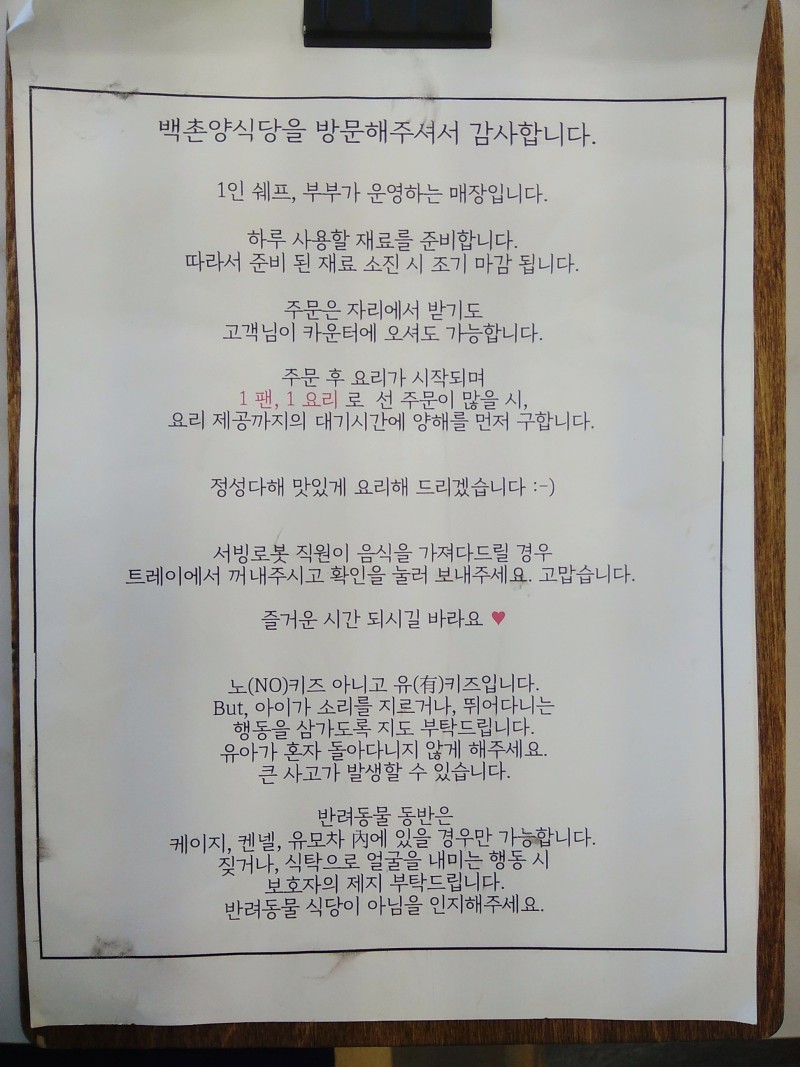 백촌양식당을 방문해주셔서 감사합니다.
1인 쉐프, 부부가 운영하는 매장입니다.
하루 사용할 재료를 준비합니다.
따라서 준비 된 재료 소진 시 조기 마감 됩니다.
주문은 자리에서 받기도
고객님이 카운터에 오셔도 가능합니다.
주문 후 요리가 시작되며
1 팬, 1 요리 로 선 주문이 많을 시,
요리 제공까지의 대기시간에 양해를 먼저 구합니다.
정성다해 맛있게 요리해 드리겠습니다 :-)
서빙로봇 직원이 음식을 가져다드릴 경우
트레이에서 꺼내주시고 확인을 눌러 보내주세요. 고맙습니다.
즐거운 시간 되시길 바라요 ♥
노(NO)키즈 아니고 유(有)키즈입니다.
But, 아이가 소리를 지르거나, 뛰어다니는
행동을 삼가도록 지도 부탁드립니다.
유아가 혼자 돌아다니지 않게 해주세요.
큰 사고가 발생할 수 있습니다.
반려동물 동반은
케이지, 켄넬, 유모차 內에 있을 경우만 가능합니다.
짖거나, 식탁으로 얼굴을 내미는 행동 시
보호자의 제지 부탁드립니다.
반려동물 식당이 아님을 인지해주세요.